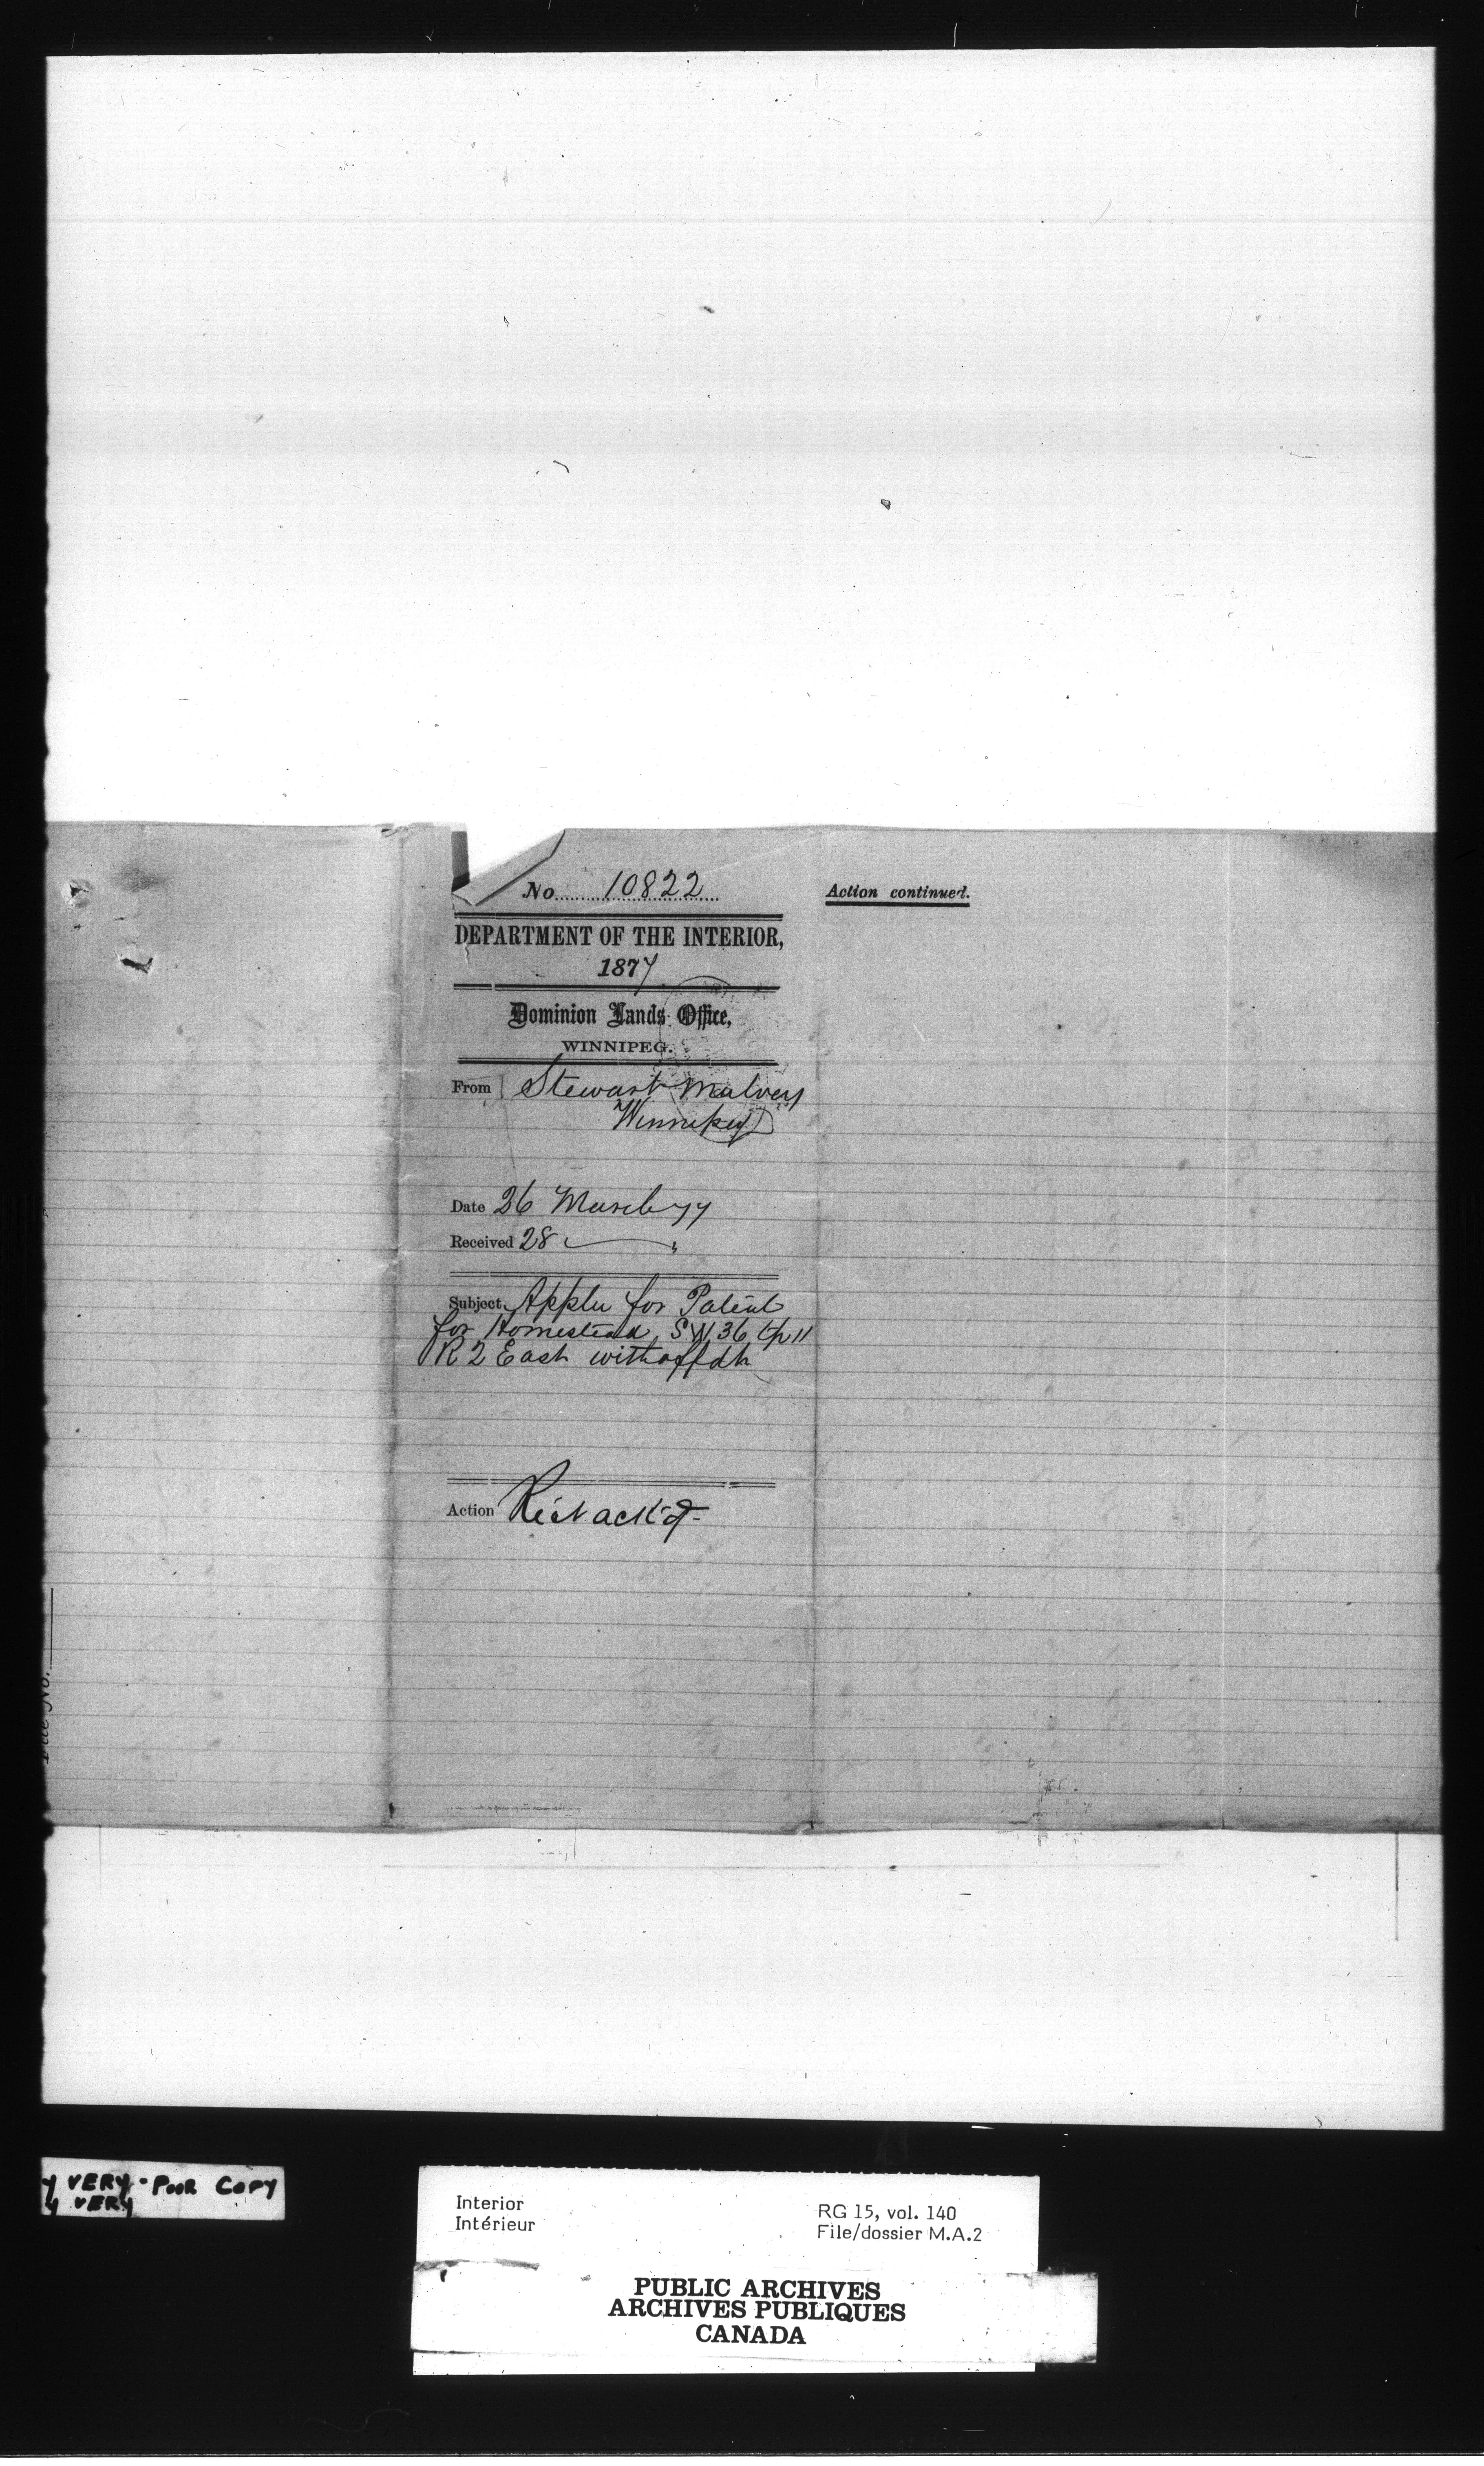 No 10822
DEPARTMENT OF THE INTERIOR,
1877
Dominion Lands Office,
WINNIPEG.
From Stewart Mulvey
Winnipeg
Date 26 March 77
Received 28 "
Subject. Appln for Patent
for Homestead, SW 36 tp 11
R 2 East with affdt
Action Rect ack'd
Action continued.
File No.
y VERY-POOR COPY
y VERY
Interior
Intérieur
RG 15, vol. 140
File/dossier M.A.2
PUBLIC ARCHIVES
ARCHIVES PUBLIQUES
CANADA